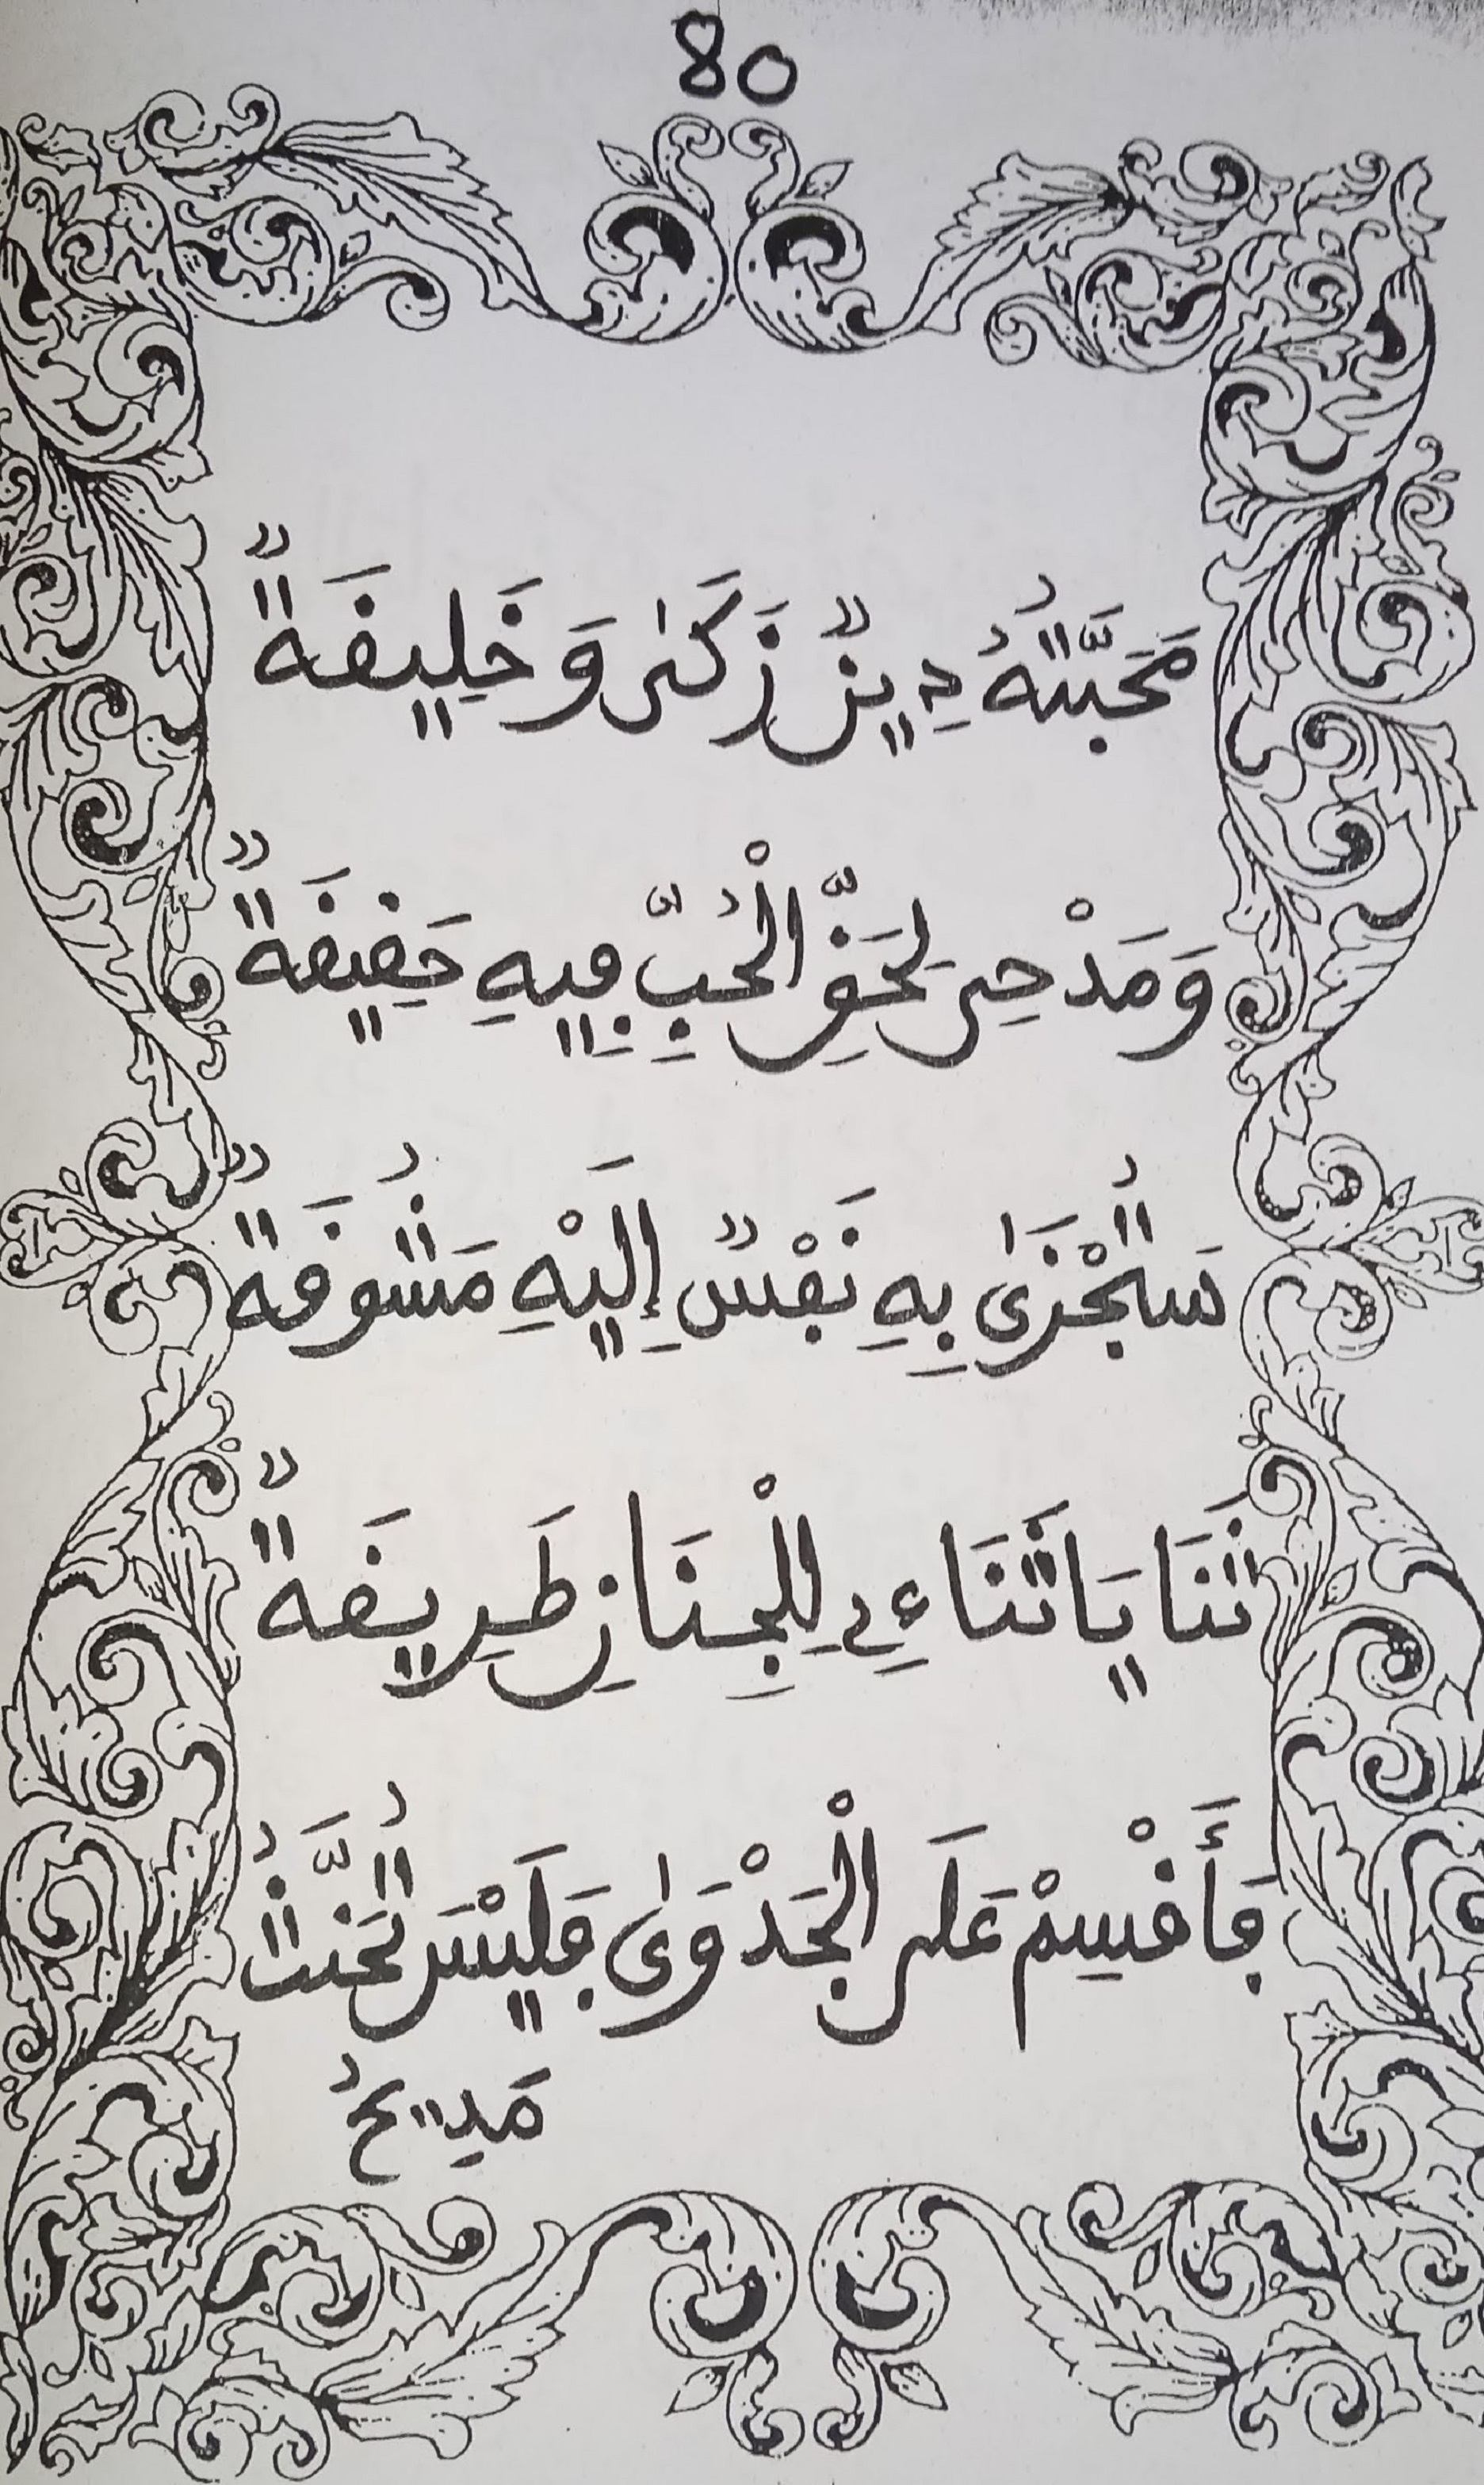 80
مَحَبَّتُهُ دِينٌ زَكَىٰ وَخَلِيقَةٌ
وَمَدْحِي لِحَقِّ الْحُبِّ فِيهِ حَقِيقَةٌ
سَتُجْزَىٰ بِهِ نَفْسٌ إِلَيْهِ مَشُوقَةٌ
ثَنَايَا ثَنَاءِي لِلْجِنَانِ طَرِيقَةٌ
فَأَقْسِمْ عَلَى الْجَدْوَىٰ فَلَيْسَ تُحَنَّثُ
مَدِيحُ